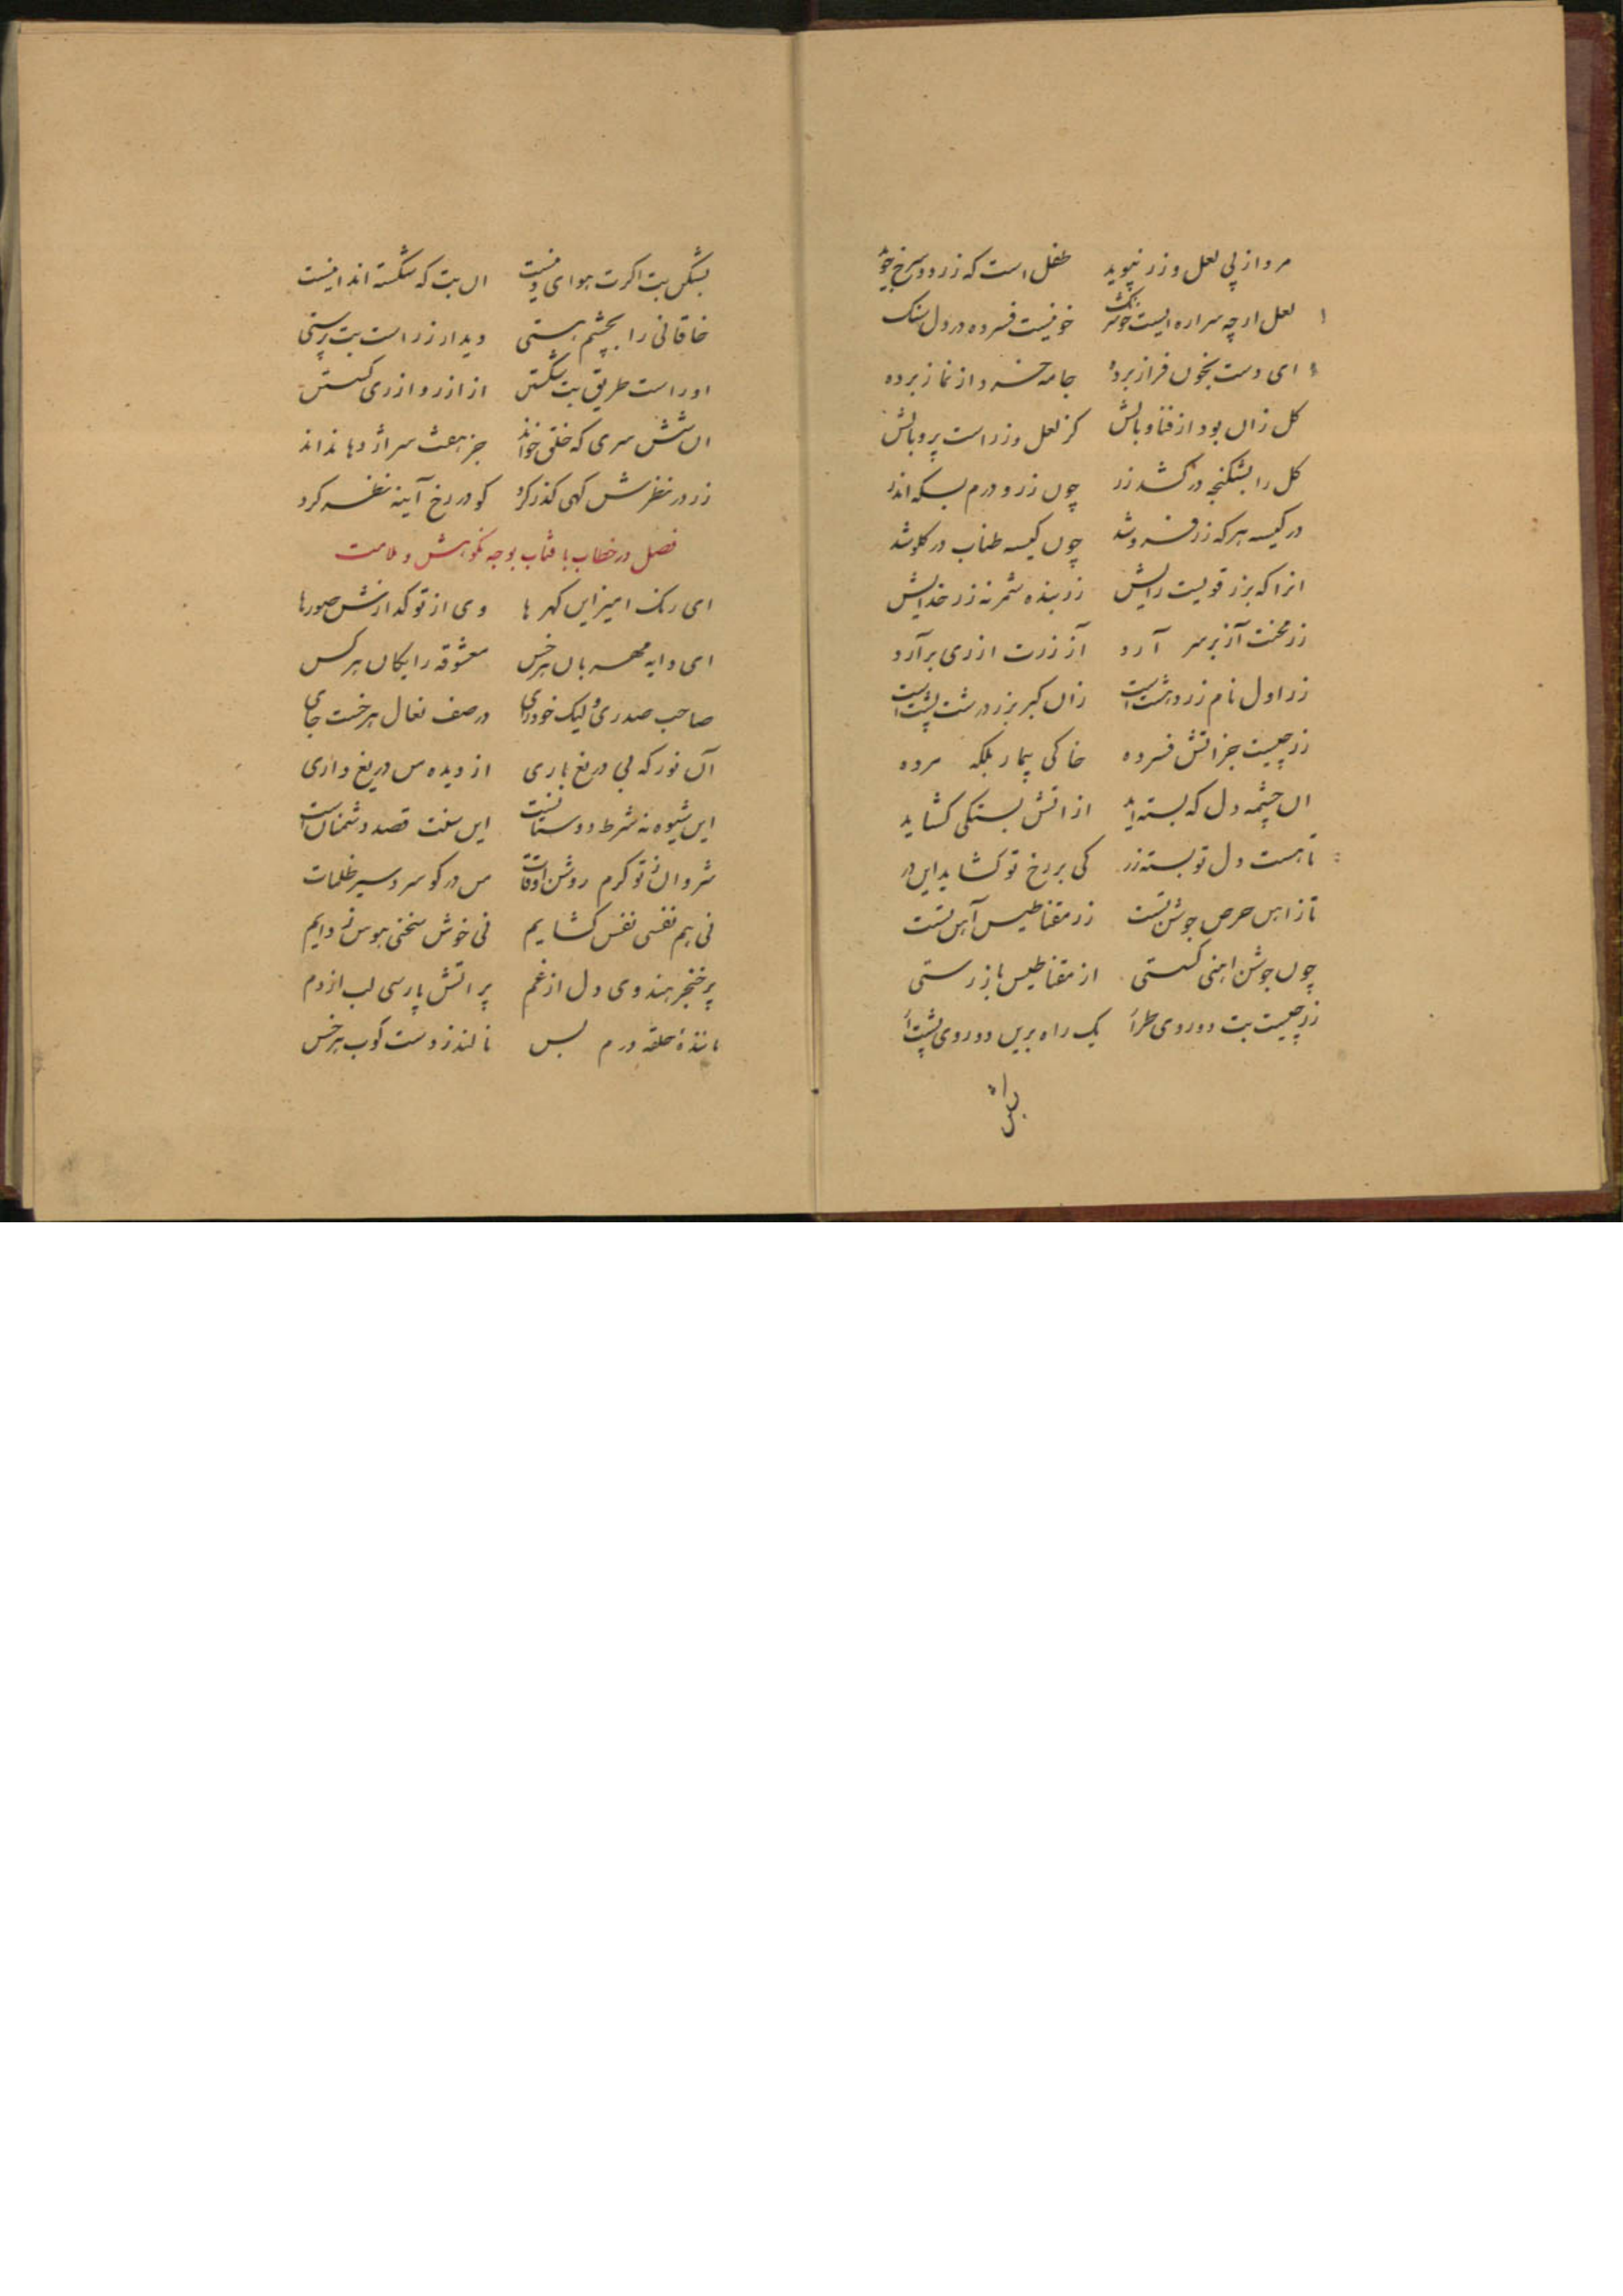 مرد از پی لعل و زر نپوید طفل است که زرد و سرخ جوید
لعل ارچه سراره ایست خوش رنگ خونیست فسرده در دل سنک
ای دست بخون فراز برده جامه خسرو از نماز برده
کل زان بود از فنا وبالش کز لعل و زر است پر و بالش
کل را بشکنجه در کشد زر چون زر و درم بسکه اندر
در کیسه هر که زر فرو شد چون کیسه طناب در کلو شد
انرا که بزر قویست رایش زر بنده شمر نه زر خدایش
زر محنت آز بر سر آرد آز زرت ازری برآرد
زر اول نام زردهشت است زان کبر بزر درشت پشت است
زر چیست جز اتش فسرده خاکی بیمار بلکه مرده
ان چشمه دل که بسته اید از اتش بستکی کشاید
تا هست دل تو بسته زر کی بر رخ تو کشاید این در
تا زاهن حرص جوشن تست زر مقناطیس آهن تست
چون جوشن اهنی کسستی از مقناطیس باز رستی
زر چیست بت دوروی طرا یک راه برین دوروی پشت آ
بشکن
بشکن بت اکرت هوای دینست ان بت که شکسته اند اینست
خاقانی را بچشم هستی دیدار زر است بت پرستی
او راست طریق بت شکستن از ازر و ازری کسستن
ان شش سری که خلق خواند جز هفت سر اژدها نداند
زر در نظرش کهی کذر کرد کو در رخ آینه نظر کرد
فصل در خطاب بافتاب بوجه نکوهش و ملامت
ای رنک امیز این کهر ها وی از تو کدارش صورها
ای دایه مهربان هر خس معشوقه رایکان هر کس
صاحب صدری و لیک خودرای در صف نعال هر خست جای
آن نور که بی دریغ باری از دیده من دریغ داری
این شیوه نه شرط دوستانست این سنت قصد دشمنان است
شروان ز تو کرم روشن اوقات من در کو سرد سیر ظلمات
نی هم نفسی نفس کشایم نی خوش سخنی هوس زدایم
پر خنجر هندوی دل از غم پر اتش پارسی لب از دم
مانندهٔ حلقه درم بس نالنده ز دست کوب هر خس